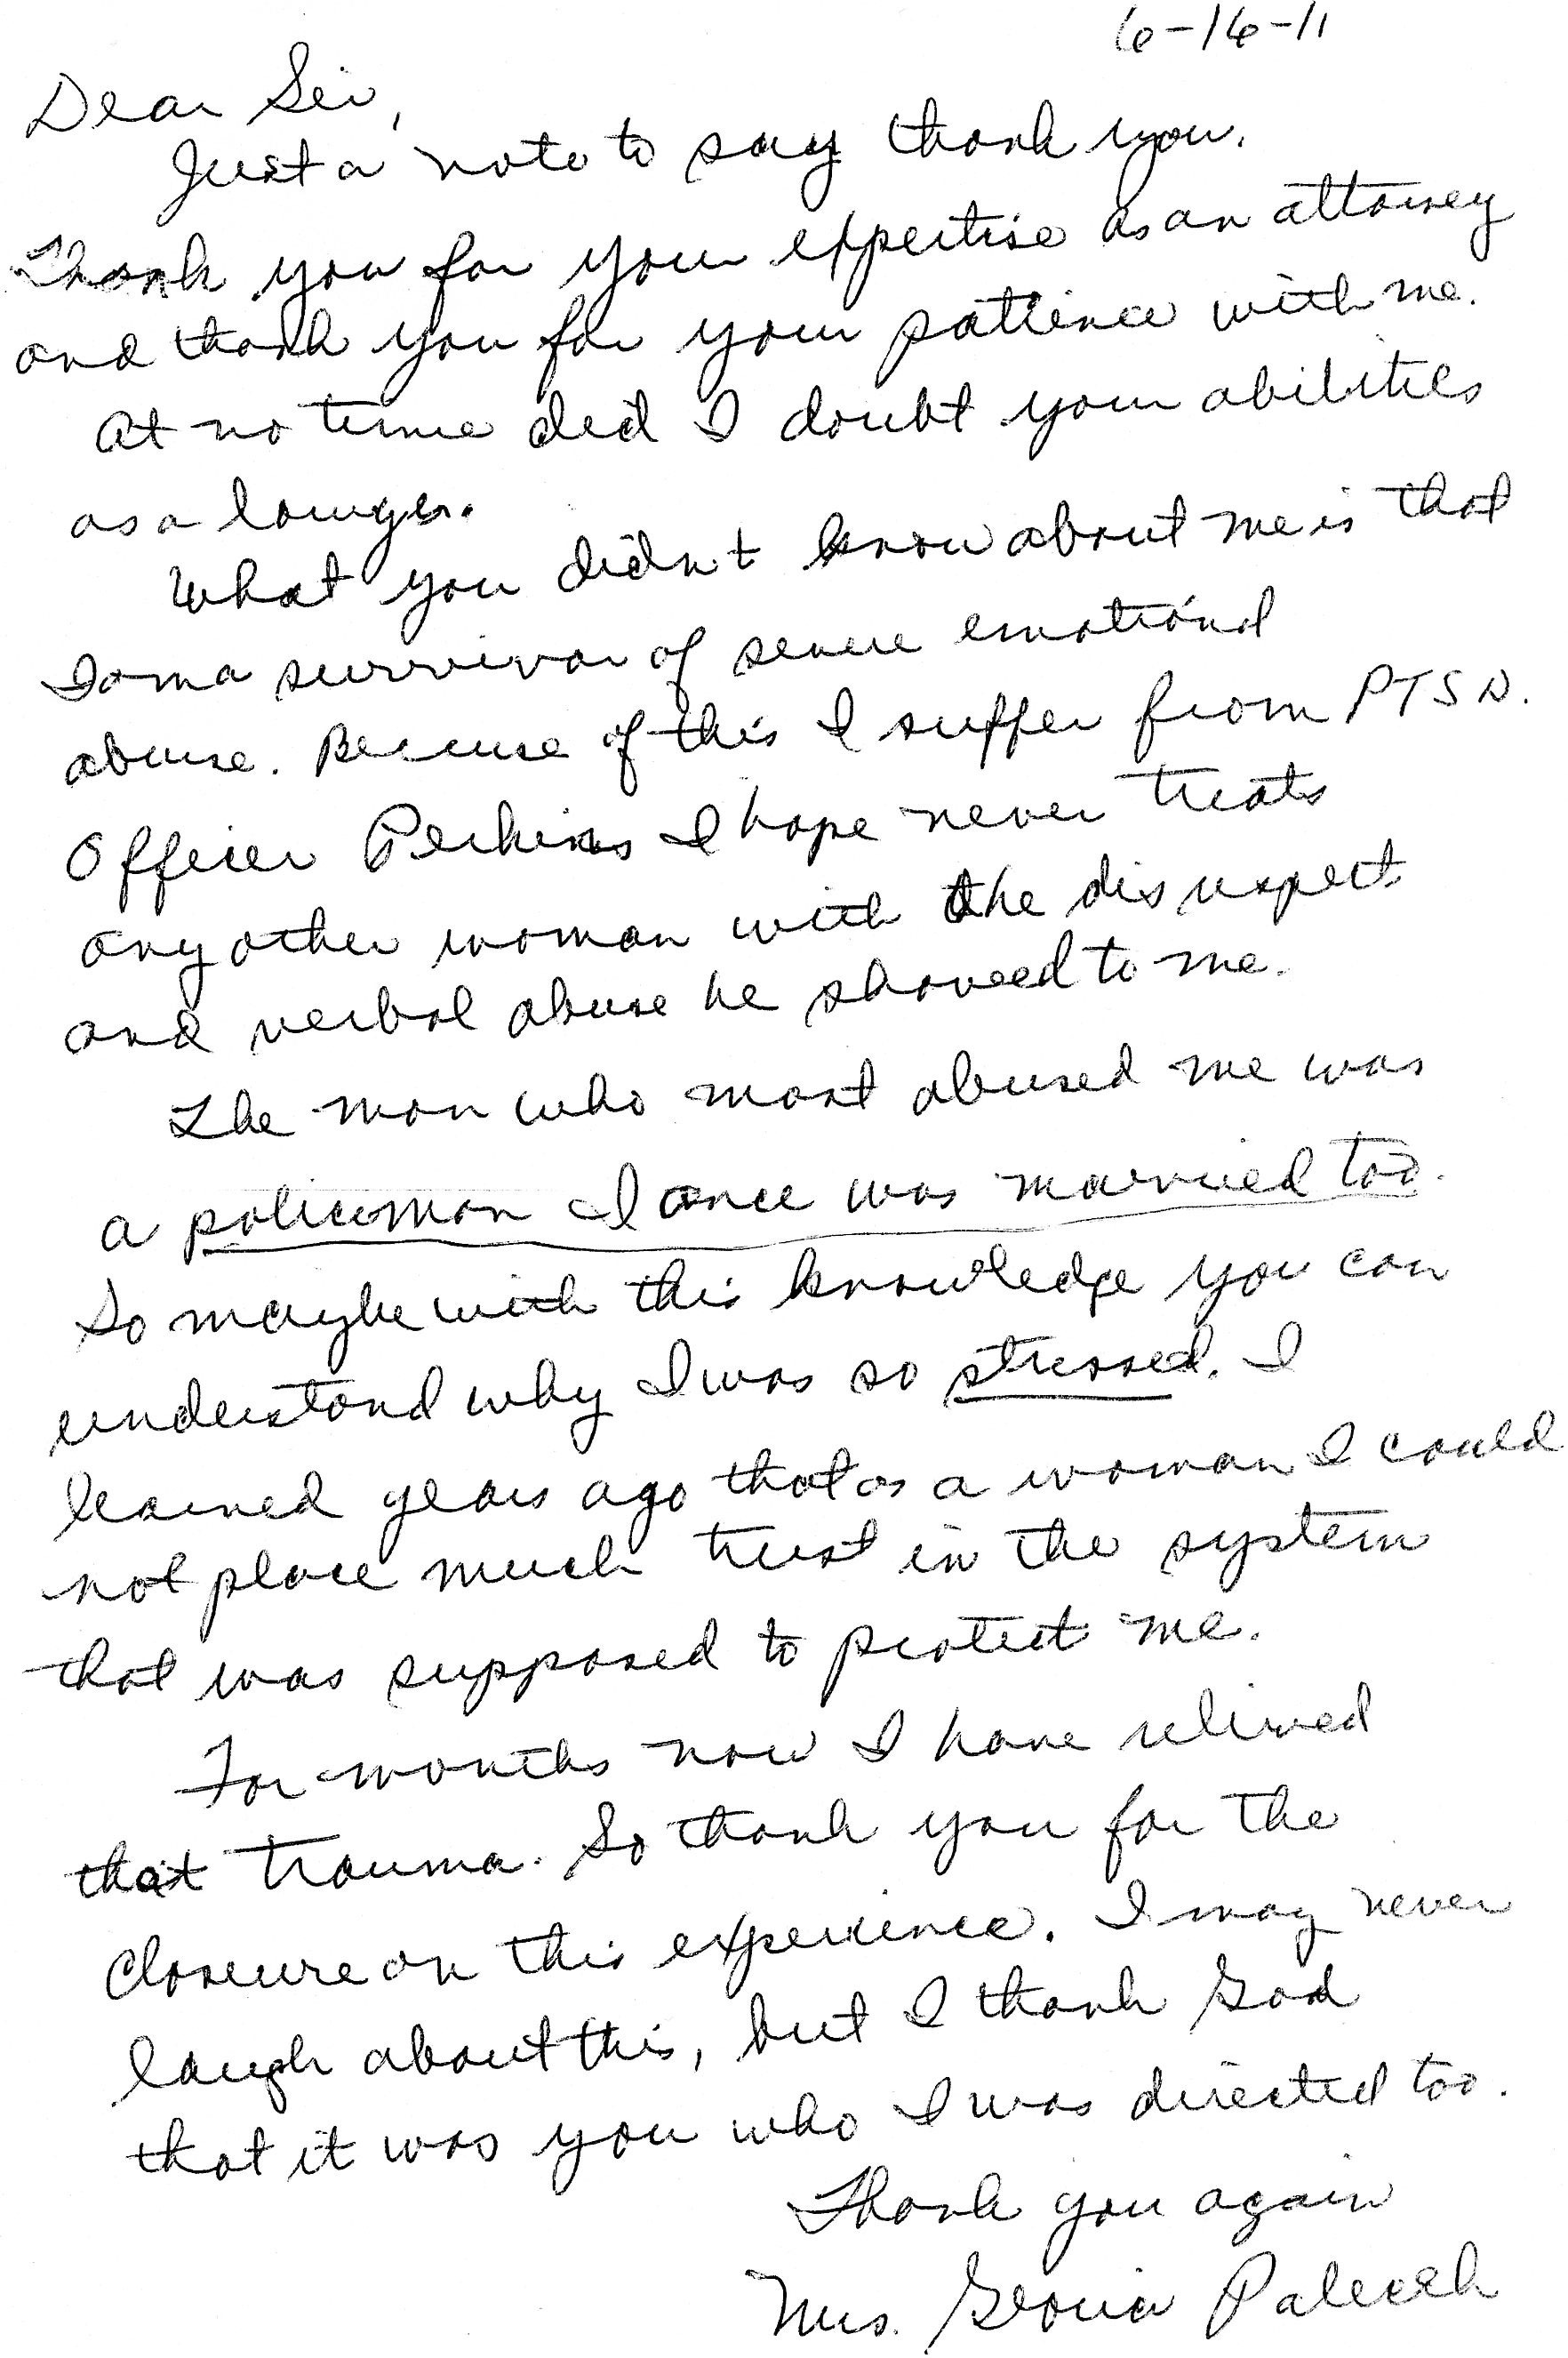 6-16-11
Dear Sir,
Just a note to say thank you.
Thank you for your expertise as an attorney
and thank you for your patience with me.
At no time did I doubt your abilities
as a lawyer.
What you didn't know about me is that
I am a survivor of severe emotional
abuse. Because of this I suffer from PTSD.
Officer Perkins I hope never treats
any other woman with the disrespect
and verbal abuse he showed to me.
The man who most abused me was
a policeman I once was married too.
So maybe with this knowledge you can
understand why I was so stressed. I
learned years ago that as a woman I could
not place much trust in the system
that was supposed to protect me.
For months now I have relived
that trauma. So thank you for the
closure on this experience. I may never
laugh about this, but I thank God
that it was you who I was directed too.
Thank you again
Mrs. Gloria